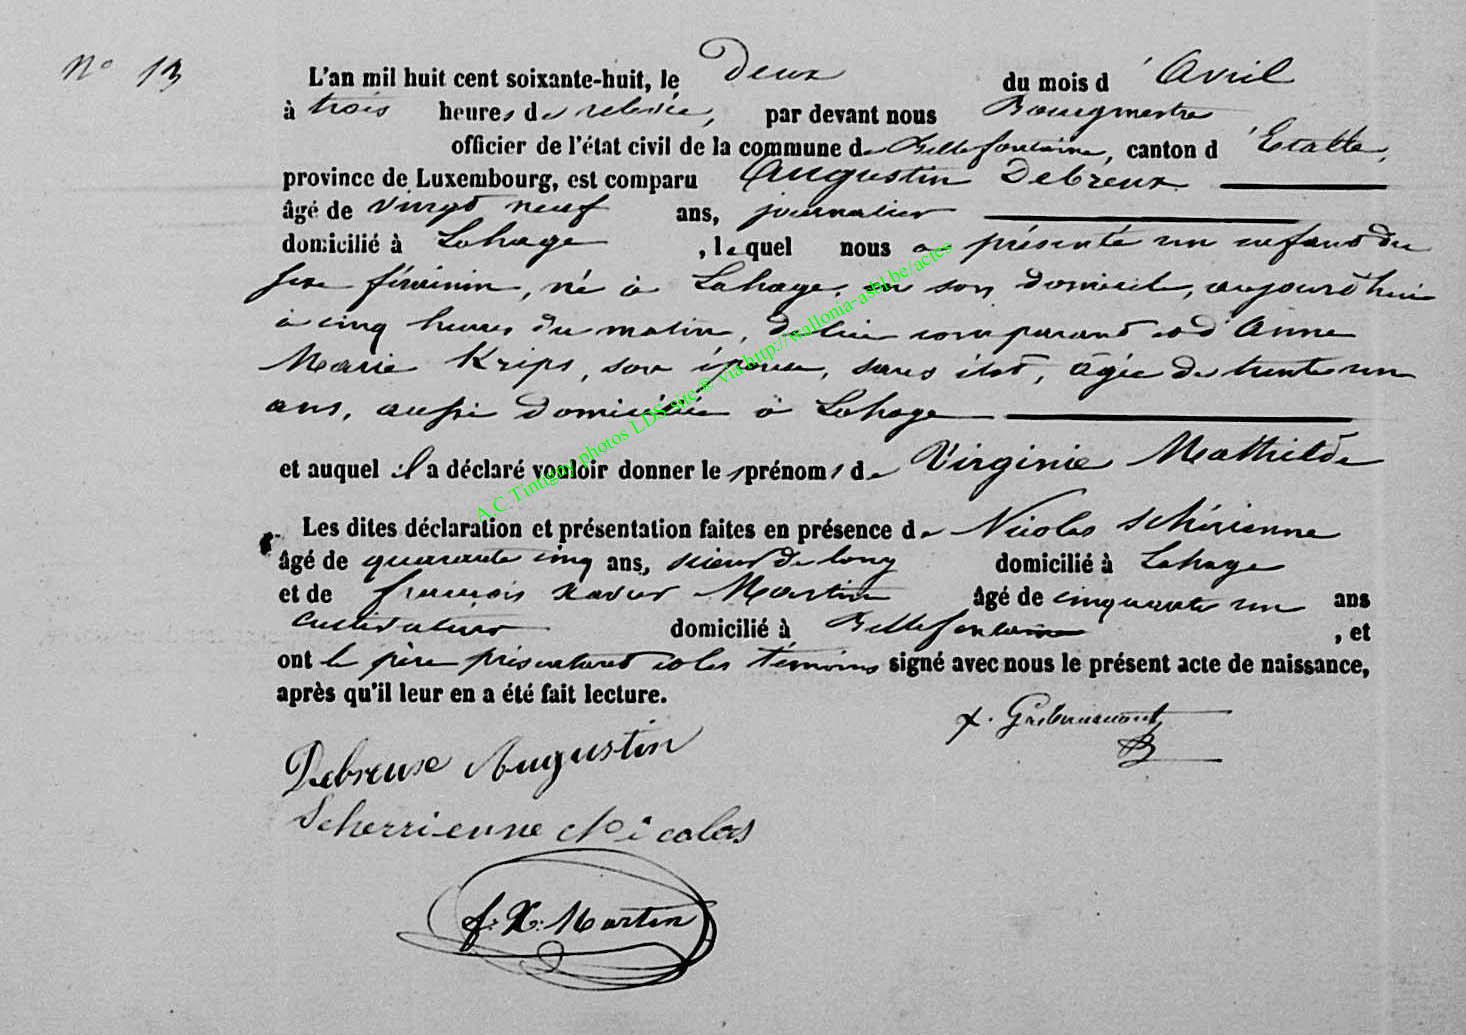 N° 13
L'an mil huit cent soixante-huit, le Deux du mois d'Avril
à trois heures de relevée, par devant nous Bourgmestre
officier de l'état civil de la commune de Bellefontaine, canton d'Etalle,
province de Luxembourg, est comparu Augustin Debreux
âgé de vingt neuf ans, journalier
domicilié à Lahage, lequel nous a présenté un enfant du
sexe féminin, né à Lahage, en son domicile, aujourd'hui
à cinq heures du matin, de lui comparant et d'Anne
Marie Krips, son épouse, sans état, âgée de trente un
ans, aussi domiciliée à Lahage
et auquel il a déclaré vouloir donner les prénoms de Virginie Mathilde
Les dites déclaration et présentation faites en présence de Nicolas Schérienne
âgé de quarante cinq ans, scieur de long domicilié à Lahage
et de françois Xavier Martin âgé de cinquante un ans
cultivateur domicilié à Bellefontaine, et
ont le père présentant et les témoins signé avec nous le présent acte de naissance,
après qu'il leur en a été fait lecture.
Debreuse Augustin
Scherrienne Nicolas
f. X. Martin
A.C Tintigny photos LDS site © via http://wallonia-asbl.be/actes